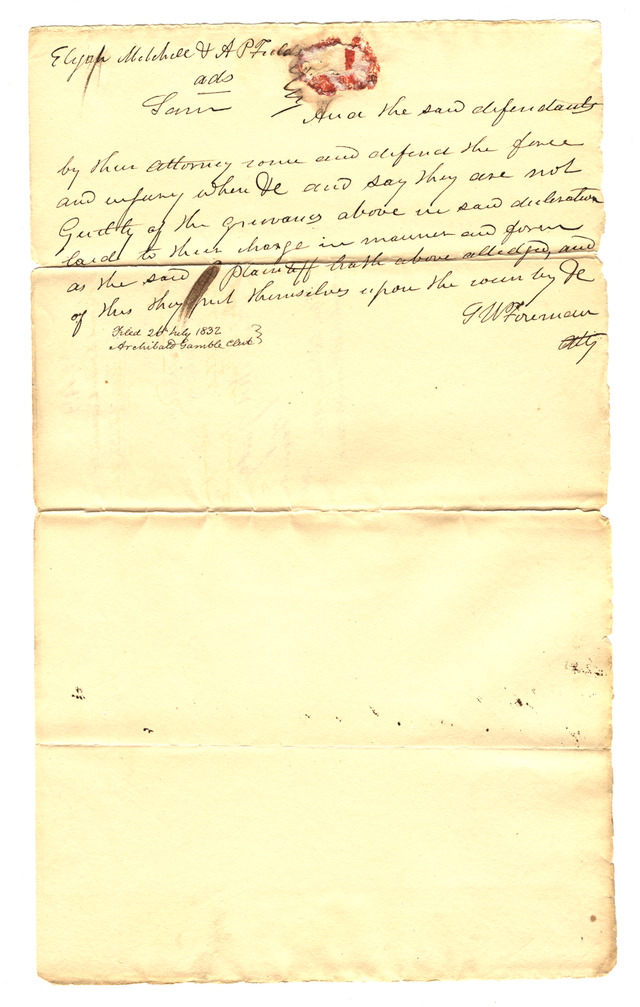 Elijah Mitchell & A P Field
ads
Sam
And the said defendants
by their attorney come and defend the force
and injury when &c and say they are not
Guilty of the grievances above in said declaration
laid to their charge in manner and form
as the said Plaintiff hath above alledged, and
of this they put themselves upon the country &c
G W Foreman
Atty
Filed 24 July 1832
Archibald Gamble Clerk